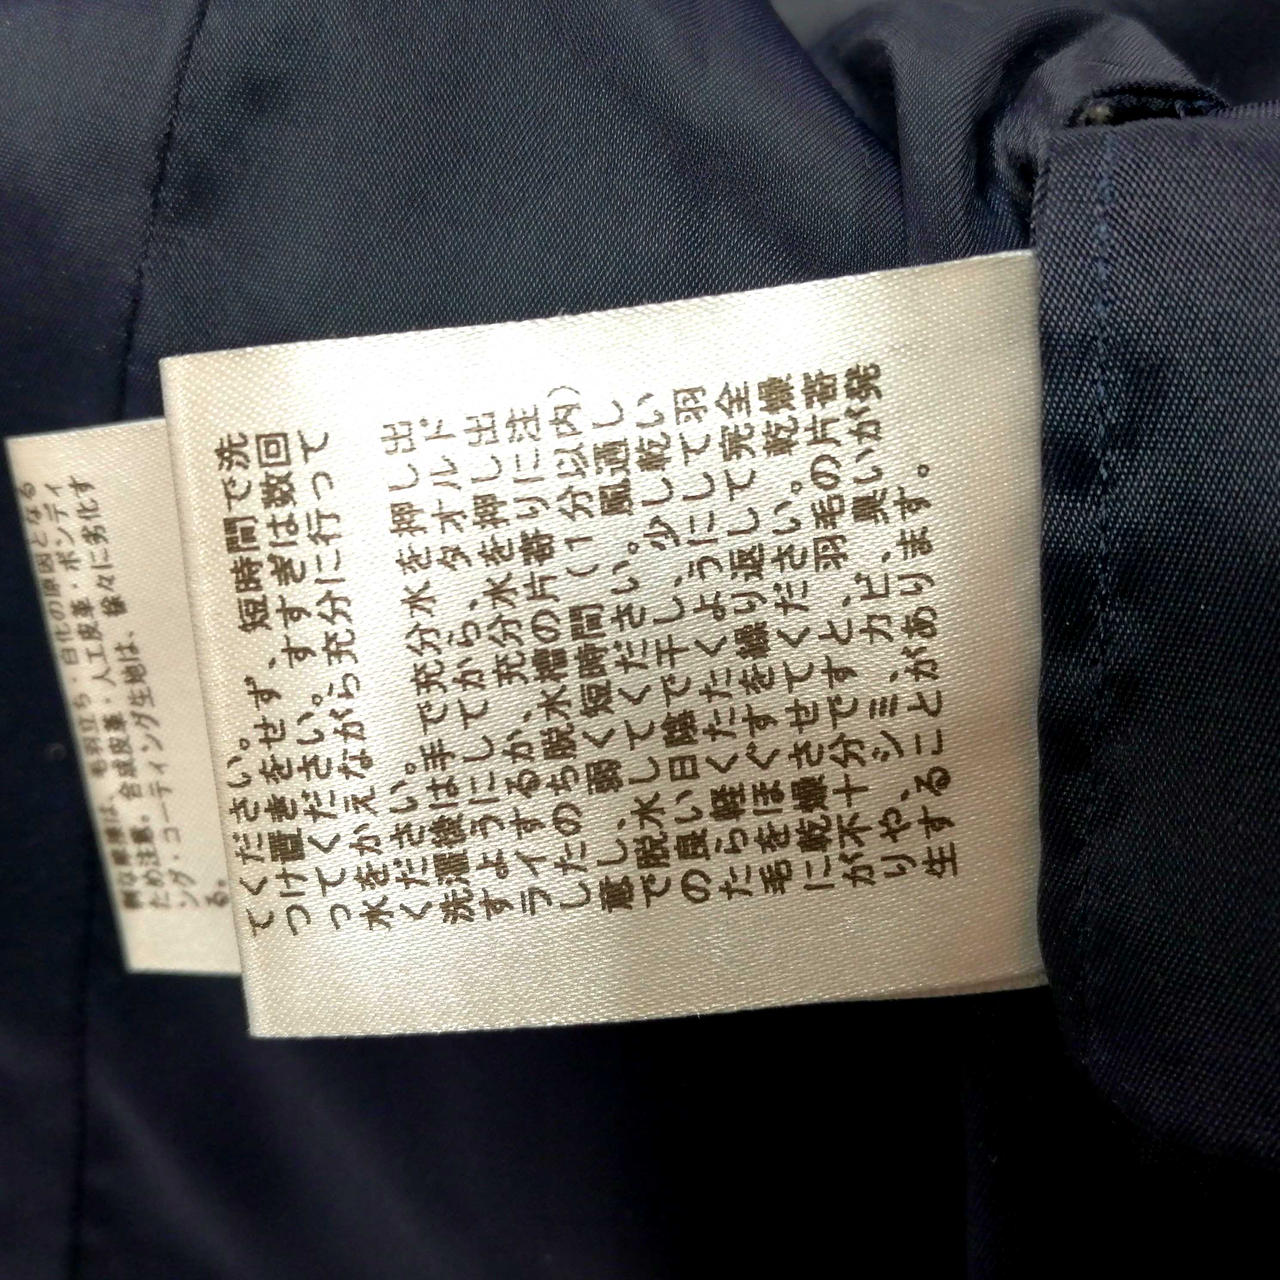 な摩擦は、毛羽立ち・白化の原因となる
ため注意。合成皮革・人工皮革・ボンディ
ング・コーティング生地は、徐々に劣化す
る。
てください。
つけ置きをせず、短時間で洗
ってください。すすぎは数回
水をかえながら充分に行って
ください。
洗濯後は手で充分水を押し出
すようにしてから、タオルド
ライするか、充分水を押し出
したのち脱水槽の片寄りに注
意し、弱く短時間（1分以内）
で脱水してください。風通し
の良い日陰で干し、少し乾い
たら軽くたたくようにして羽
毛をほぐすを繰り返して完全
に乾燥させてください。乾燥
が不十分ですと、羽毛の片寄
りや、シミ、カビ、異いが発
生することがあります。